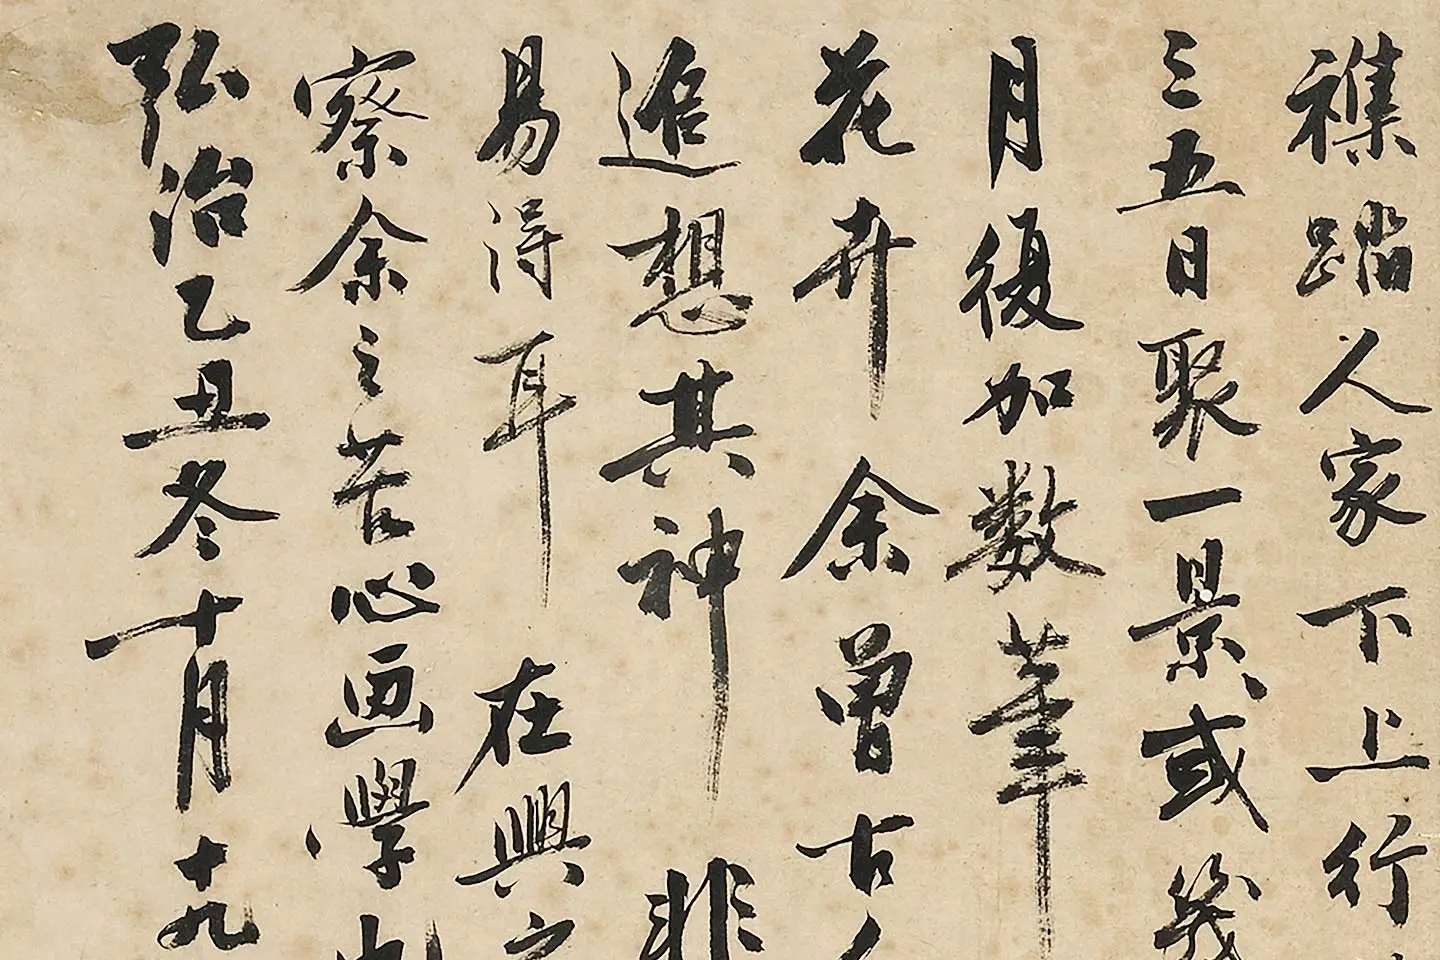 襍踏人家下上行
三五日聚一景或幾
月復加数筆
花卉余曾古
追想其神非
易得耳在興之
察余之苦心画學
弘治乙丑冬十月十九